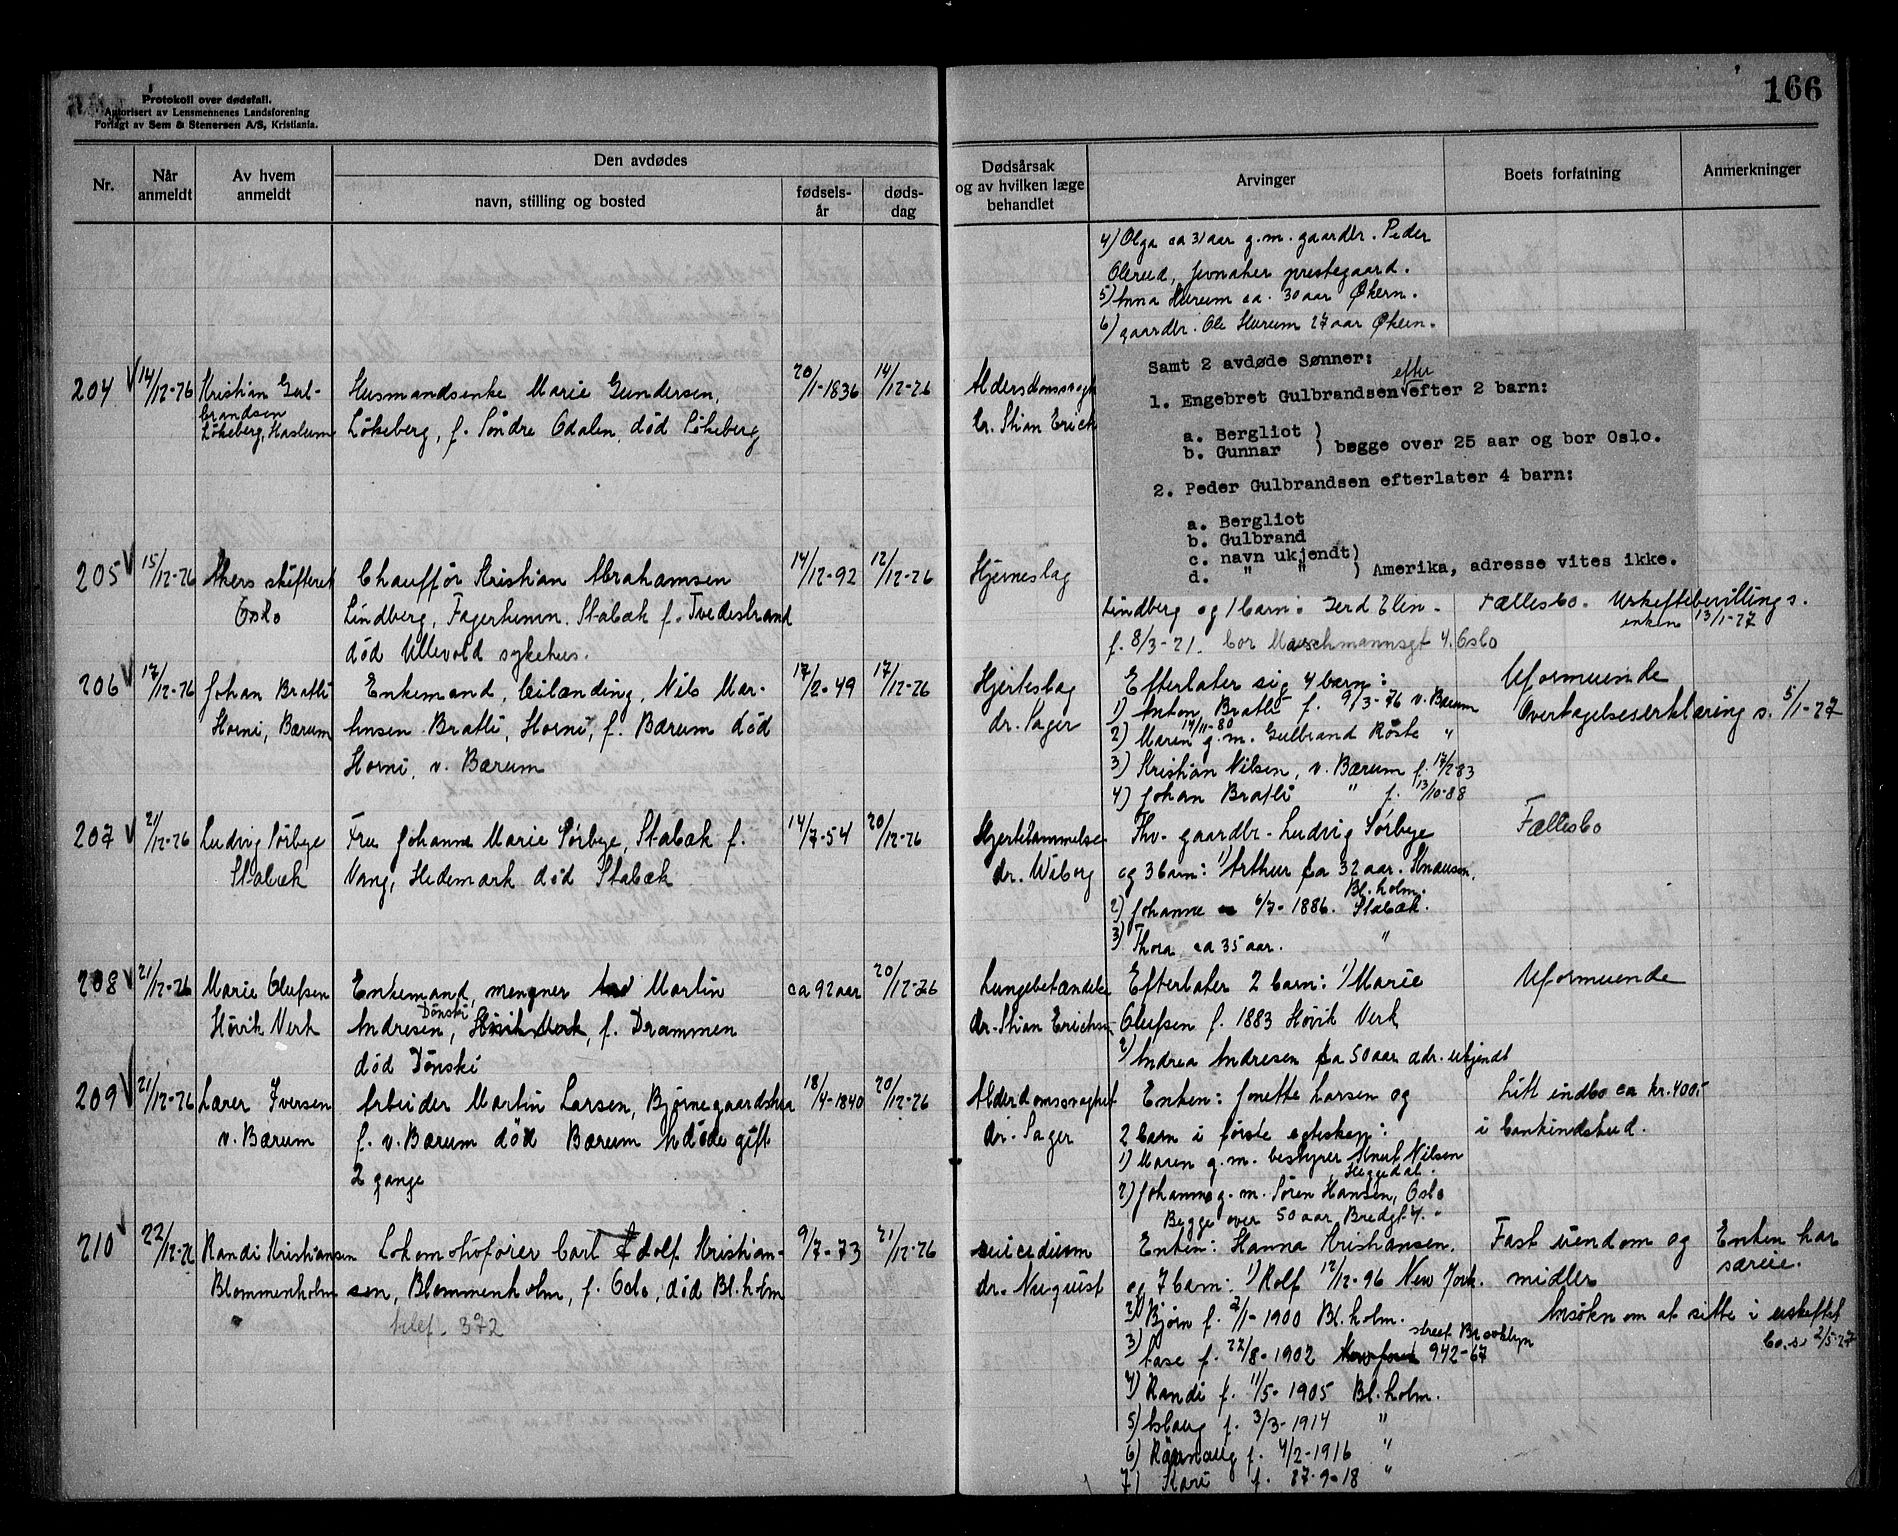 Protokoll over dødsfall.
Autorisert av Lensmennenes Landsforening
Forlagt av Sem & Stenersen A/S, Kristiania.
166
Nr.
Når anmeldt
Av hvem anmeldt
Den avdødes
navn, stilling og bosted
fødsels-år
døds-dag
Dødsårsak og av hvilken læge behandlet
Arvinger
Boets forfatning
Anmerkninger
4) Olga ca 31 aar g.m. gaardbr. Peder
Olerud, Jevnaker prestegaard.
5) Anna Hurum ca. 30 aar Økern.
6) gaardbr. Ole Hurum 27 aar Økern.
204 14/12-26 Kristian Gul-
brandsen
Løkeberg, Haslum
Husmandsenke Marie Gundersen,
Løkeberg, f. Søndre Odalen, død Løkeberg
20/1-1836 14/12-26
Aldersdomssvagh
Dr. Stian Erich
Samt 2 avdøde Sønner:
efter
1. Engebret Gulbrandsen efter 2 barn:
a. Bergliot )
b. Gunnar ) begge over 25 aar og bor Oslo.
2. Peder Gulbrandsen efterlater 4 barn:
a. Bergliot
b. Gulbrand
c. navn ukjendt)
d. " " ) Amerika, adresse vites ikke.
205 15/12-26 Akers skifteret
Oslo
Chauffør Kristian Abrahamsen
Lindberg, Fagerheim. Stabæk f. Tvedestrand
død Ullevold sykehus.
14/12-92 12/12-26
Hjerneslag
Lindberg og 1 barn: Gerd Elin -
f. 8/3-21. bor Marschmannsgt 4. Oslo
Fællesbo. Uskiftebevilling s.
enken 13/1-27
206 17/12-26 Johan Bratli
Horni, Bærum
Enkemand, Nils Mar-
tinsen Bratli, Horni, f. Bærum død
Horni, v. Bærum
17/2-49 17/12-26
Hjerteslag
dr. Sager
Efterlater sig 4 barn:
1) Anton Bratli f. 9/3-76 v. Bærum
14/11-80
2) Maren g.m. Gulbrand Røste "
3) Kristian Nilsen, v. Bærum f. 17/2-83
4) Johan Bratli " f. 13/10-88
Uformuende
Overtagelseserklæring s. 5/1-27
207 21/12-26 Ludvig Sørbye
Stabæk
Fru Johanne Marie Sørbye, Stabæk f.
Vang, Hedemark død Stabæk
14/7-54 20/12-26
Hjertelammelse
dr. Wiborg
Thv. gaardbr. Ludvig Sørbye
og 3 barn: 1) Arthur ca 32 aar. Knausen,
Bl.holm.
2) Johanne 6/7-1886. Stabæk.
3) Thora ca 35 aar. "
Fællesbo
208 21/12-26 Marie Olufsen
Høvik Verk
Enkemand, Martin
Dønski
Andresen, Høvik Verk, f. Drammen
død Dønski
ca 92 aar 20/12-26
Lungebetændelse
dr. Stian Erichsen
Efterlater 2 barn: 1) Marie
Olufsen f. 1883 Høvik Verk
2) Andrea Andresen ca 50 aar adr. ukjendt
Uformuende
209 21/12-26 Lærer Iversen
v. Bærum
Arbeider Martin Larsen, Bjørnegaardshaa
f. v. Bærum død Bærum Avdøde gift
2 gange
18/4-1840 20/12-26
Alderdomssvaghet
dr. Sager
Enken: Jonette Larsen og
2 barn i første egteskap:
1) Maren g.m. bestyrer Knut Nilsen
Heggedal.
2) Johanne g.m. Søren Hansen, Oslo
Begge over 50 aar, Bredgt. 4.
Litt indbo ca kr. 400,-
i bankindskud.
210 22/12-26 Randi Kristiansen
Blommenholm
Lokomotivfører Carl Adolf Kristian-
sen, Blommenholm, f. Oslo, død Bl.holm
telef. 372
9/7-73 21/12-26
suicidium
dr. Nyquist
Enken: Hanna Kristiansen.
og 7 barn: 1) Rolf 12/12-96 New York.
2) Bjørn f. 2/1-1900 Bl.holm.
street Brooklyn
3) Aase f. 22/8-1902 New York 942-67
4) Randi f. 11/5-1905 Bl.holm.
5) Aslaug f. 3/3-1914 "
6) Rannaug f. 4/2-1916 "
7) Kari f. 27-9-18 "
Fast eiendom og
midler
Ansøkn om at sitte i uskiftet
bo s. 2/5-27
Enken har
særeie.